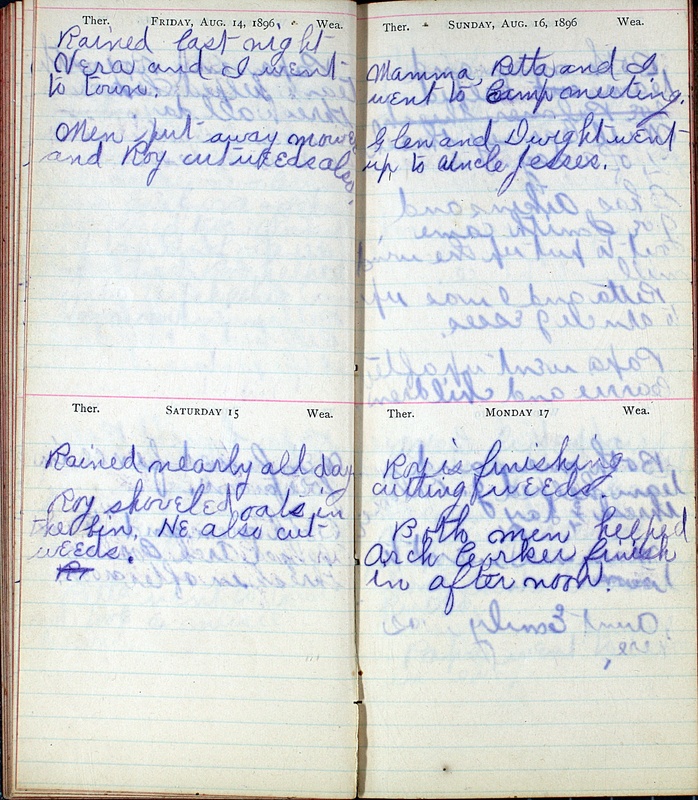 Ther. FRIDAY, AUG. 14, 1896. Wea.
Rained last night
Vera and I went
to town.
Men put away mower
and Roy cut weeds also.
Ther. SATURDAY 15 Wea.
Rained nearly all day
Roy shoveled oats in
the bin. He also cut
weeds.
Ther. SUNDAY, AUG. 16, 1896 Wea.
Mamma, Retta and I
went to Camp meeting.
Glen and Dwight went
up to Uncle Jesses.
Ther. MONDAY 17 Wea.
Roy is finishing
cutting weeds.
Both men helped
Arch Corker finish
in after noon.